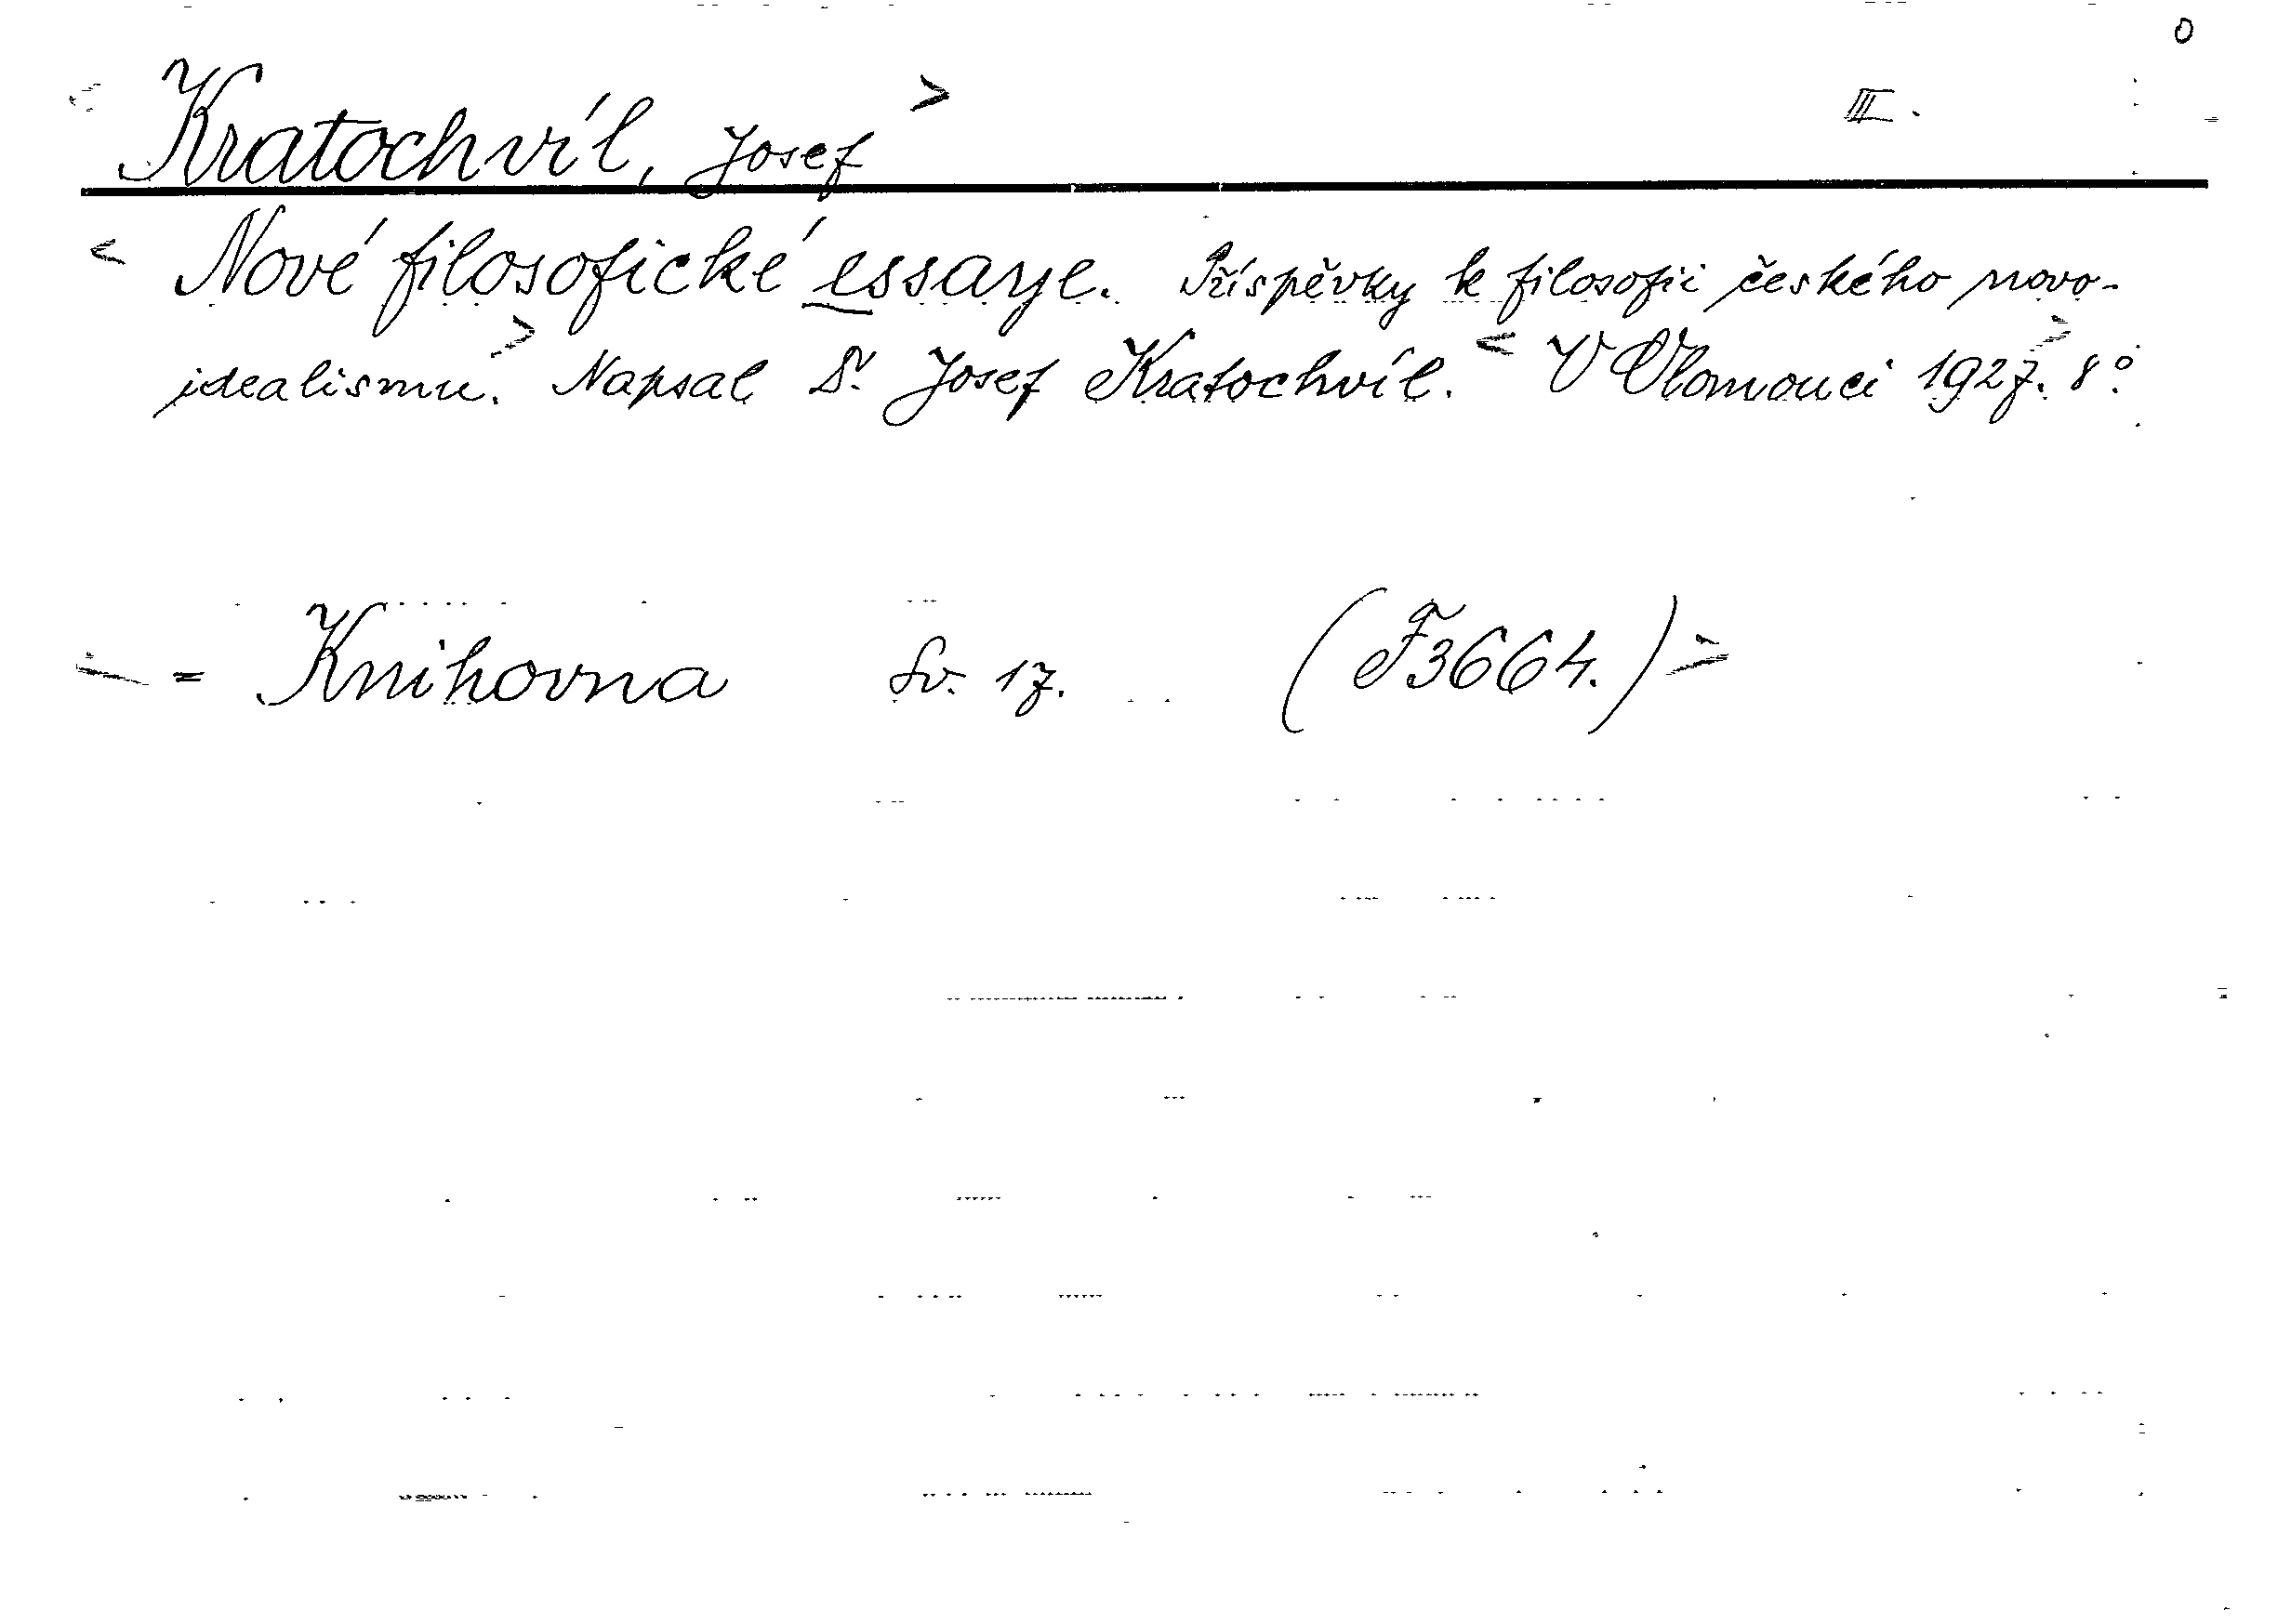 0
< Kratochvíl, Josef > III.
< Nové filosofické essaye. Příspěvky k filosofii českého novo-
idealismu. > Napsal Dr. Josef Kratochvíl. < V Olomouci 1927. > 8°.
= Knihovna Sv. 17. (F3664.) >